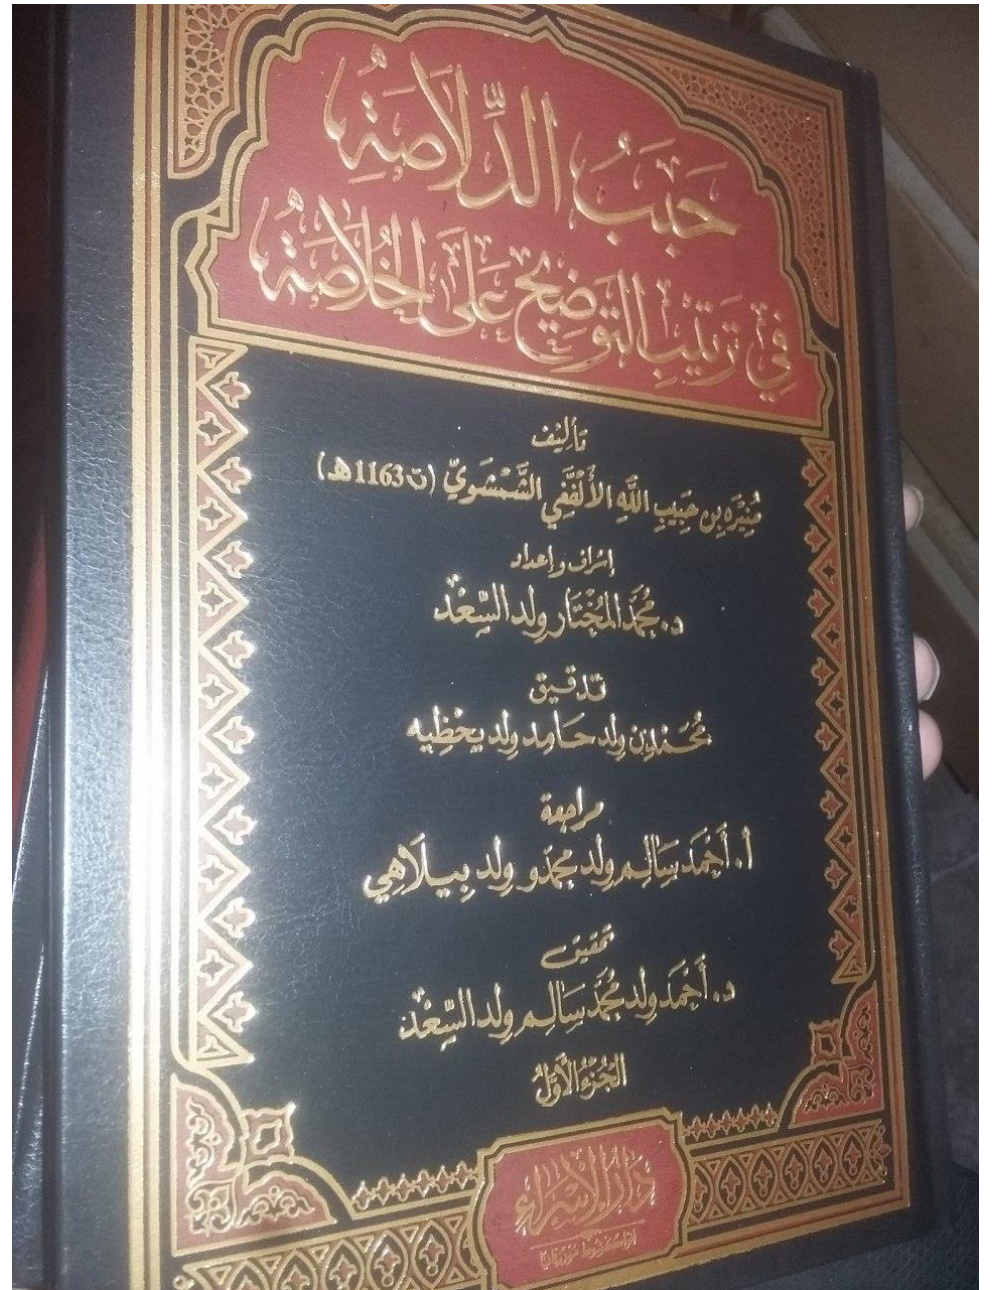 حَبَبُ الدِّلَاصَةِ
فِي تَرتِيبِ التَّوضِيحِ عَلَى الخُلَاصَةِ
تأليف
مُنِيرَه بن حَبِيبِ اللَّهِ الأَلْفَغِي الشَّمْشَوِيّ (ت 1163هـ)
إشراف وإعداد
د. مُحَمَّد المُخْتَار ولد السِّعْد
تدقيق
مُحَمَّدِن ولد حَامِد ولد يحْظِيه
مراجعة
أ. أَحْمَد سَالِم ولد مُحَمَّدُو ولد بِيلَاهِي
تحقيق
د. أَحْمَد ولد مُحَمَّد سَالِم ولد السِّعْد
الجُزءُ الأَوَّلُ
دَارُ الإِسْرَاء